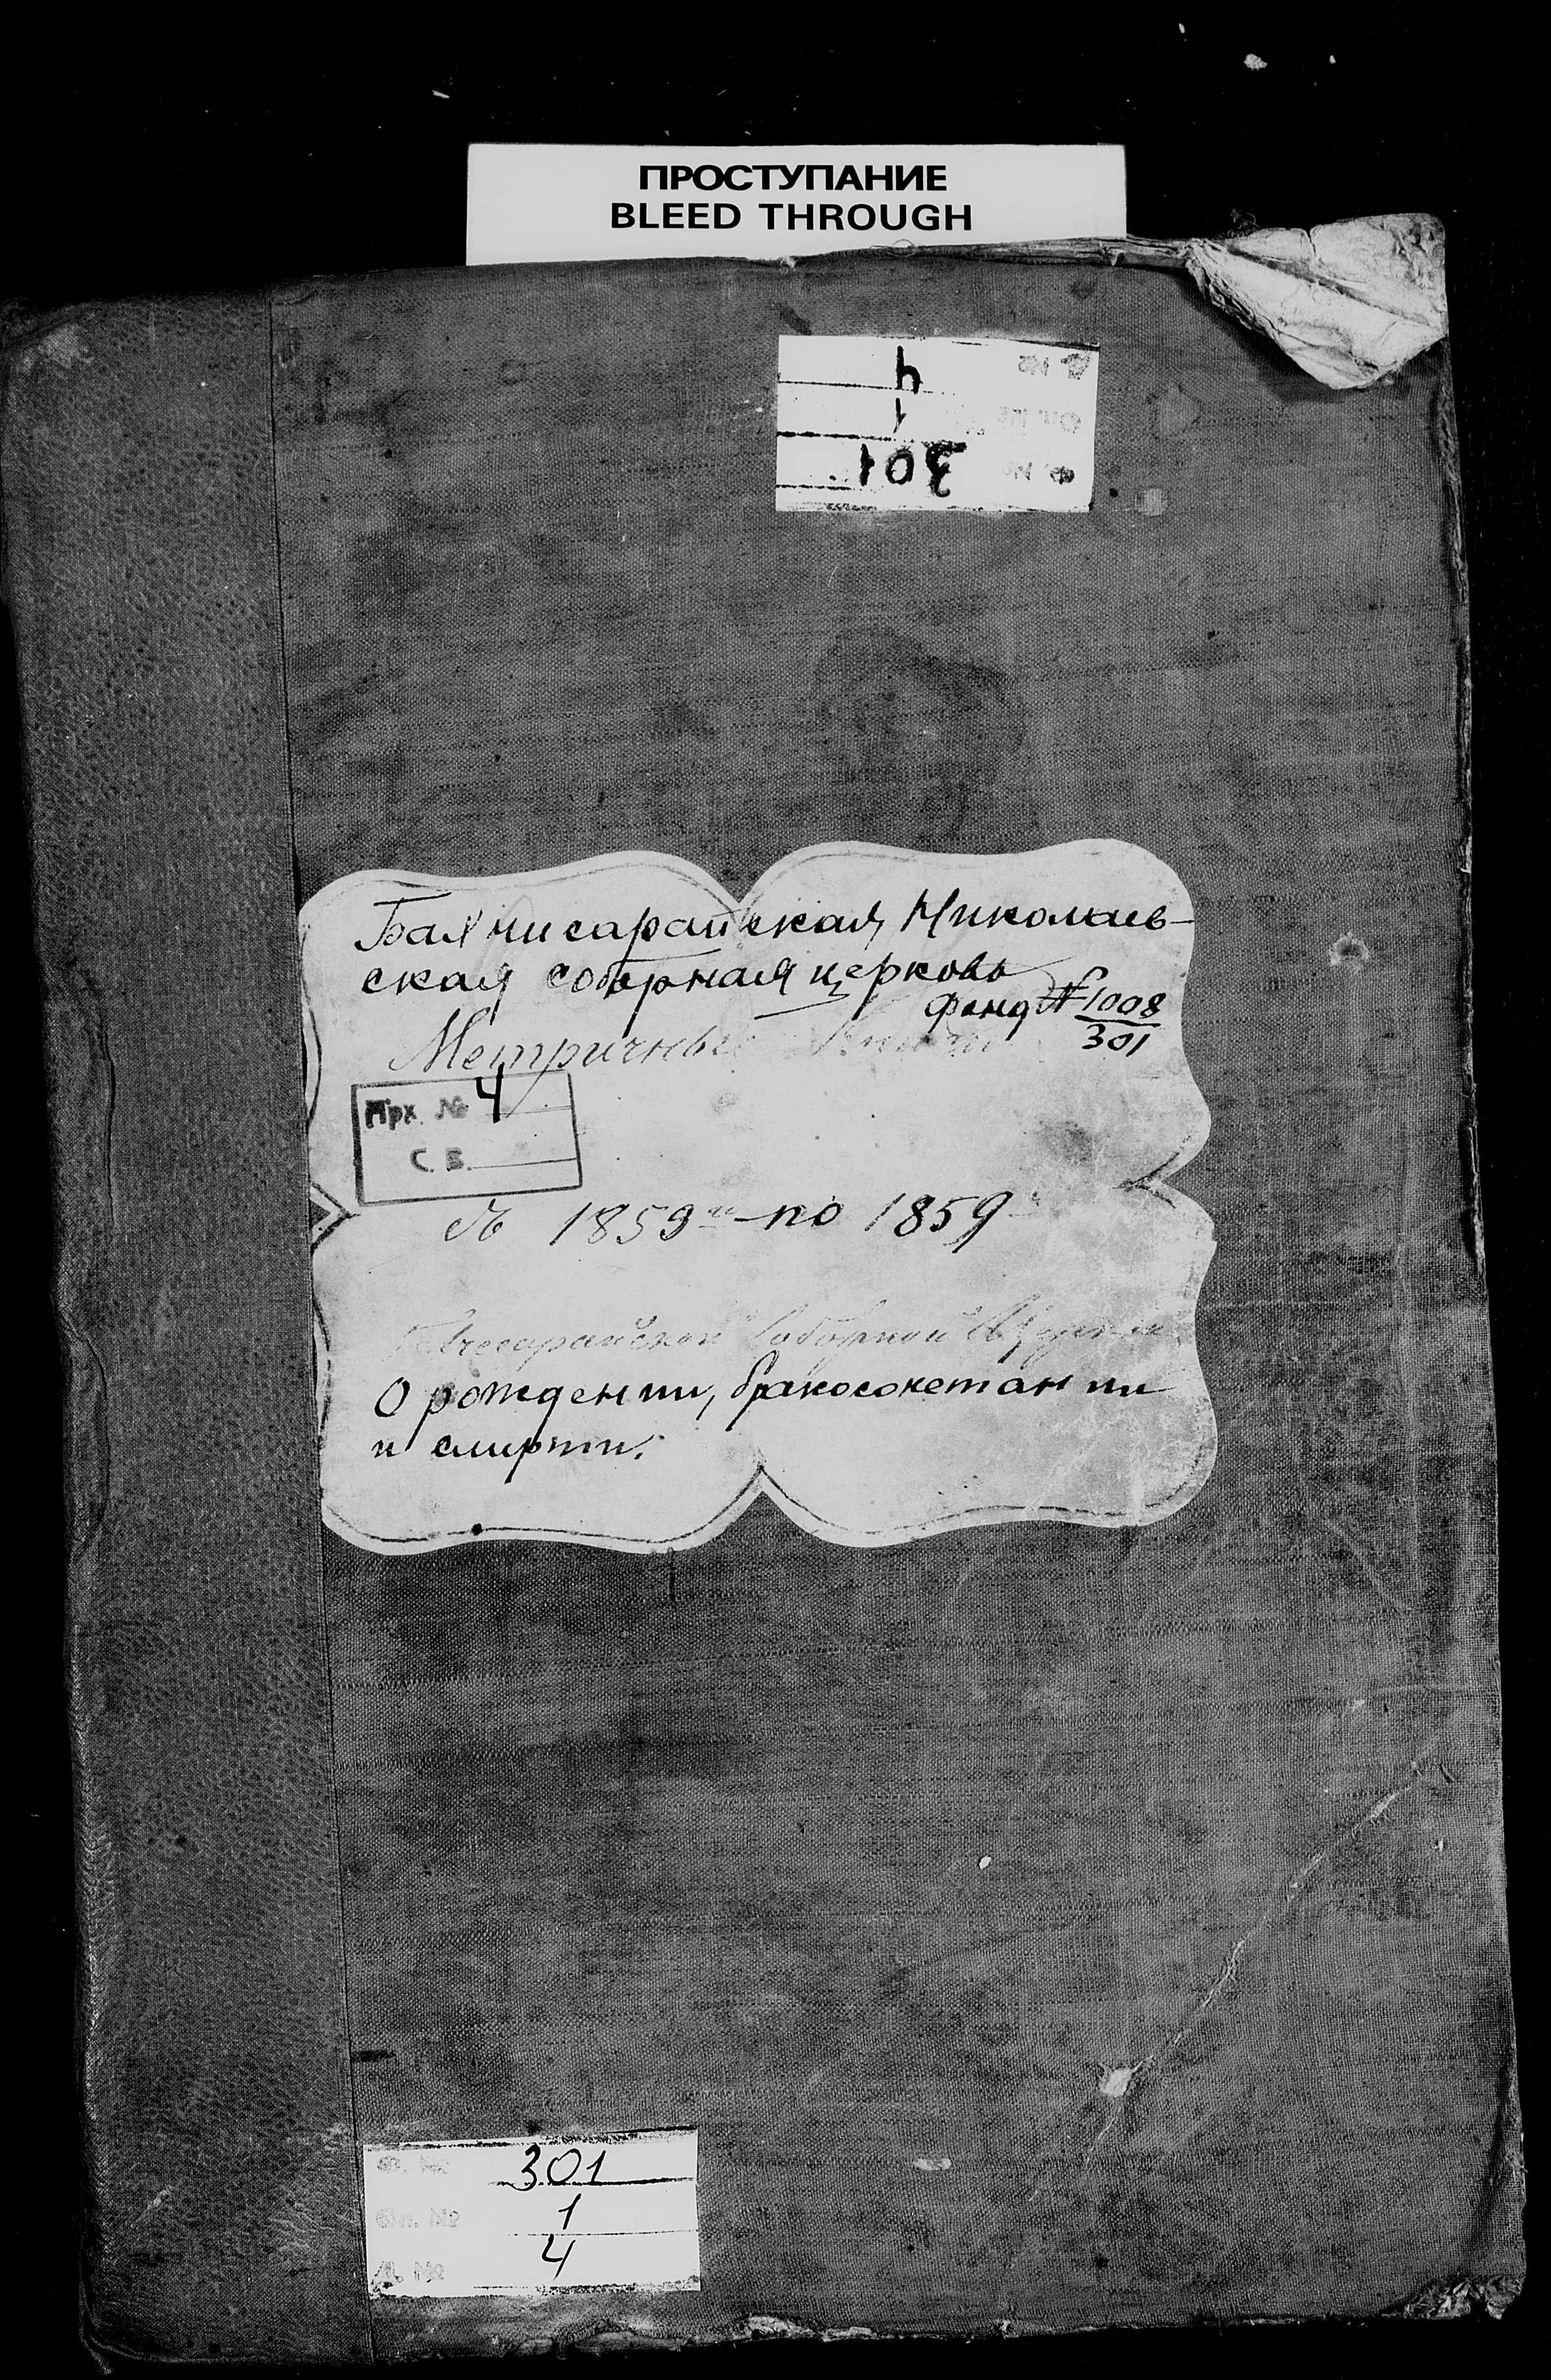 ПРОСТУПАНИЕ
BLEED THROUGH
Ф. № 301
Оп. № 1
Д. № 4
Бахчисарайская Николаев-
ская соборная церковь
фонд № 1008
301
Метричные
Арх. № 4
С. В.
Съ 1859 го по 1859
Соборной
О рождении, бракосочетании
и смирти.
Ф. № 301
Оп. № 1
Д. № 4